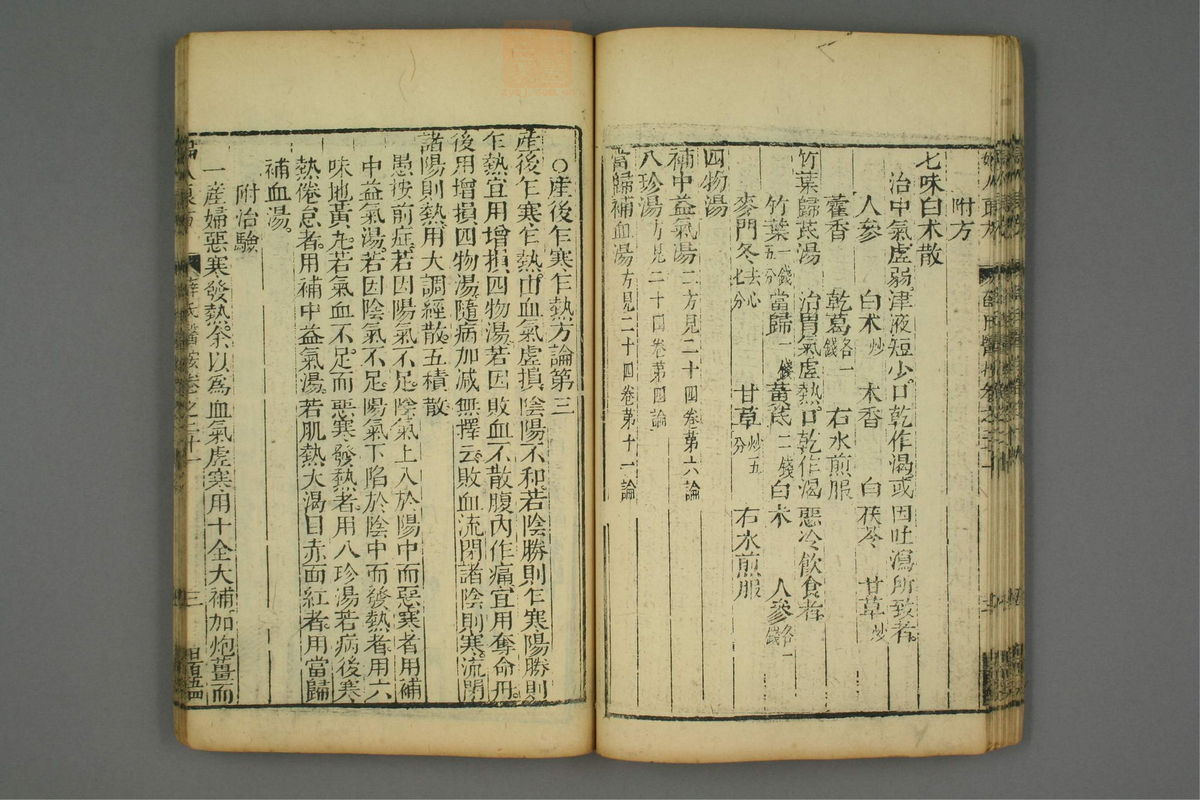 附方
七味白朮散
治中氣虛弱津液短少口乾作渴或因吐瀉所致者
人參 白朮炒 木香 白茯苓 甘草炒
藿香 乾葛各一錢 右水煎服
竹葉歸芪湯 治胃氣虛熱口乾作渴惡冷飲食者
竹葉一錢五分 當歸一錢 黃芪二錢 白朮 人參各一錢
麥門冬去心七分 甘草炒五分 右水煎服
四物湯
補中益氣湯二方見二十四卷第六論
八珍湯方見二十四卷第四論
當歸補血湯方見二十四卷第十一論
○産後乍寒乍熱方論第三
産後乍寒乍熱由血氣虛損陰陽不和若陰勝則乍寒陽勝則
乍熱宜用增損四物湯若因敗血不散腹內作痛宜用奪命丹
後用增損四物湯隨病加减無擇云敗血流閉諸陰則寒流閉
諸陽則熱用大調經散五積散
愚按前症若因陽氣不足陰氣上入於陽中而惡寒者用補
中益氣湯若因陰氣不足陽氣下陷於陰中而發熱者用六
味地黃丸若氣血不足而惡寒發熱者用八珍湯若病後寒
熱倦怠者用補中益氣湯若肌熱大渴目赤面紅者用當歸
補血湯
附治驗
一産婦惡寒發熱余以爲血氣虛寒用十全大補加炮薑而
婦人良方 薛氏醫按卷之二十一 三 百五四